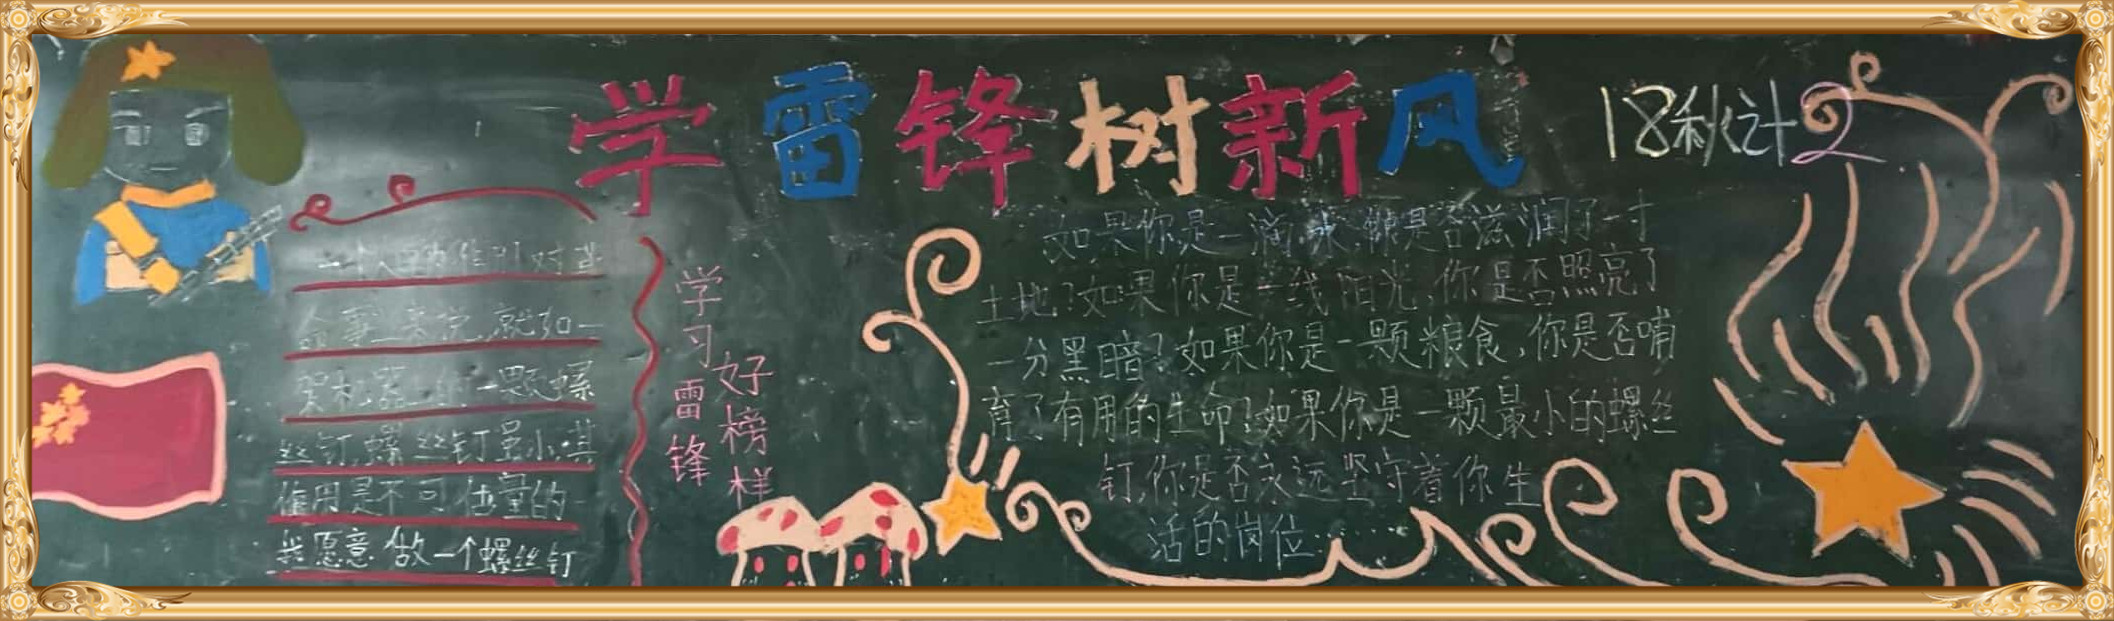 学雷锋树新风
18秋计2
一个人的作用对革
命事业来说,就如一
架机器上的一颗螺
丝钉,螺丝钉虽小,其
作用是不可估量的
我愿意做一个螺丝钉
学习雷锋
好榜样
如果你是一滴水,你是否滋润了一寸
土地?如果你是一线阳光,你是否照亮了
一分黑暗?如果你是一颗粮食,你是否哺
育了有用的生命?如果你是一颗最小的螺丝
钉,你是否永远坚守着你生
活的岗位……